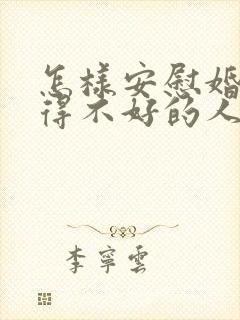 怎樣安慰婚
得不好的人
李寧雲